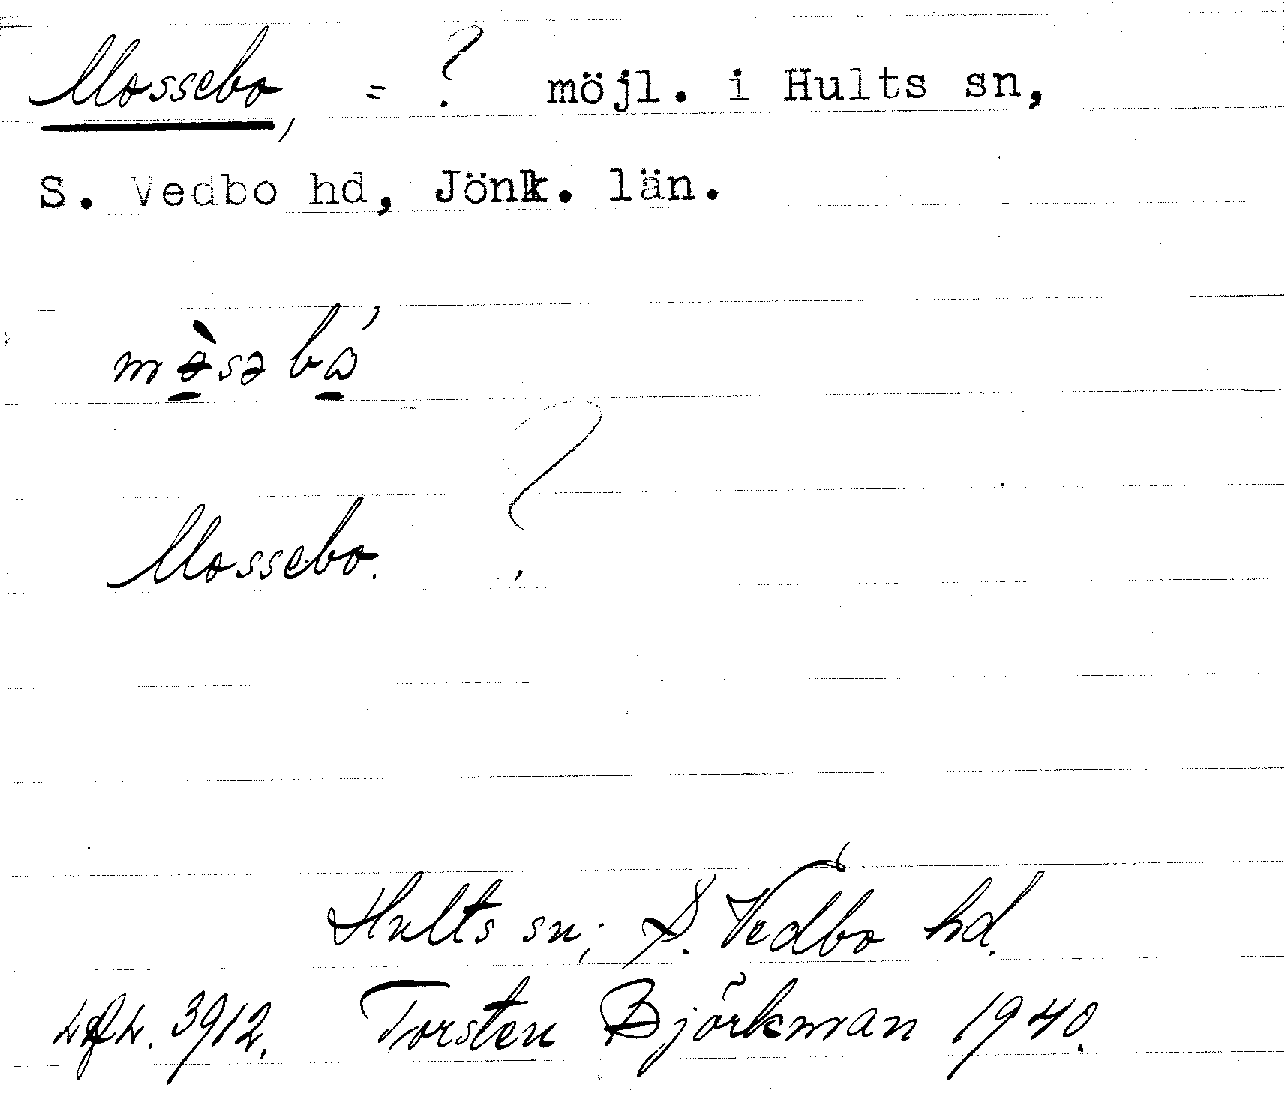 Mossebo, = ? möjl. i Hults sn,
S. Vedbo hd, Jönk. län.
Mossebo. ?
Hults sn; S. Vedbo hd.
3912. Torsten Björkman 1940.